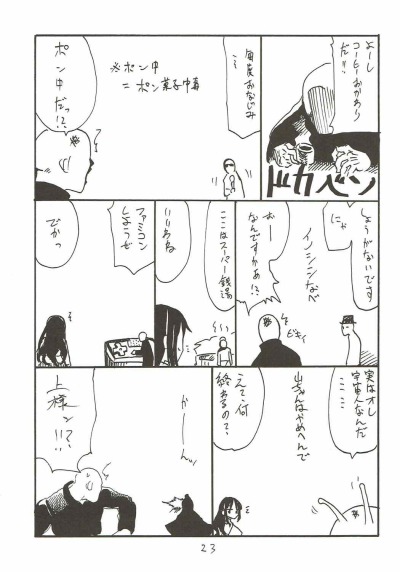 よーし
コーヒーおかわり
だ!!
ドカベン
毎度おなじみ
※ポン中
=ポン菓子中毒
ポン中だっ!?
しょうがないです
にゃ
イノシシなべ
おー
なんですかあ!?
ビキィ
ここはスーパー銭湯
いいわね
ファミコン
しようぜ
でかっ
実はオレ
宇宙人なんだ
山ちゃんはやめへんで
えっ?何
終わるの?
がーんッ
上様ッ!!?
23